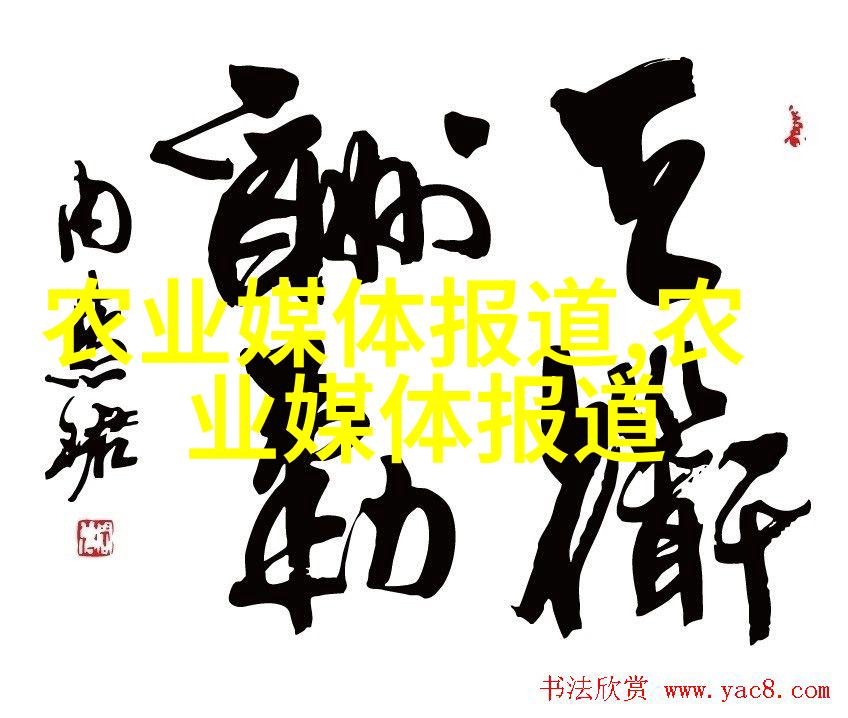 天道
酬勤
农业媒体报道,农
业媒体报道
书法欣赏 www.yac8.com